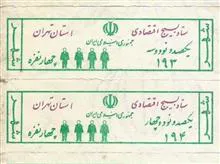 ستاد بسیج اقتصادی
استان تهران
جمهوری اسلامی ایران
یکصد و نود و سه
۱۹۳
چهار نفره
ستاد بسیج اقتصادی
استان تهران
جمهوری اسلامی ایران
یکصد و نود و چهار
۱۹۴
چهار نفره